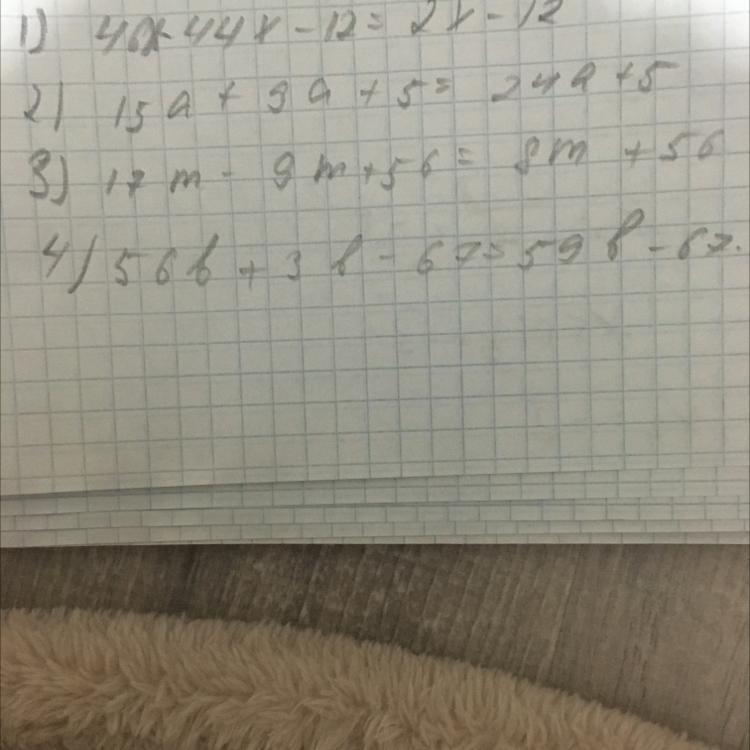 1) 46x-44x-12=2x-12
2) 15a+9a+5=24a+5
3) 17m-9m+56=8m+56
4) 56b+3b-67=59b-67.